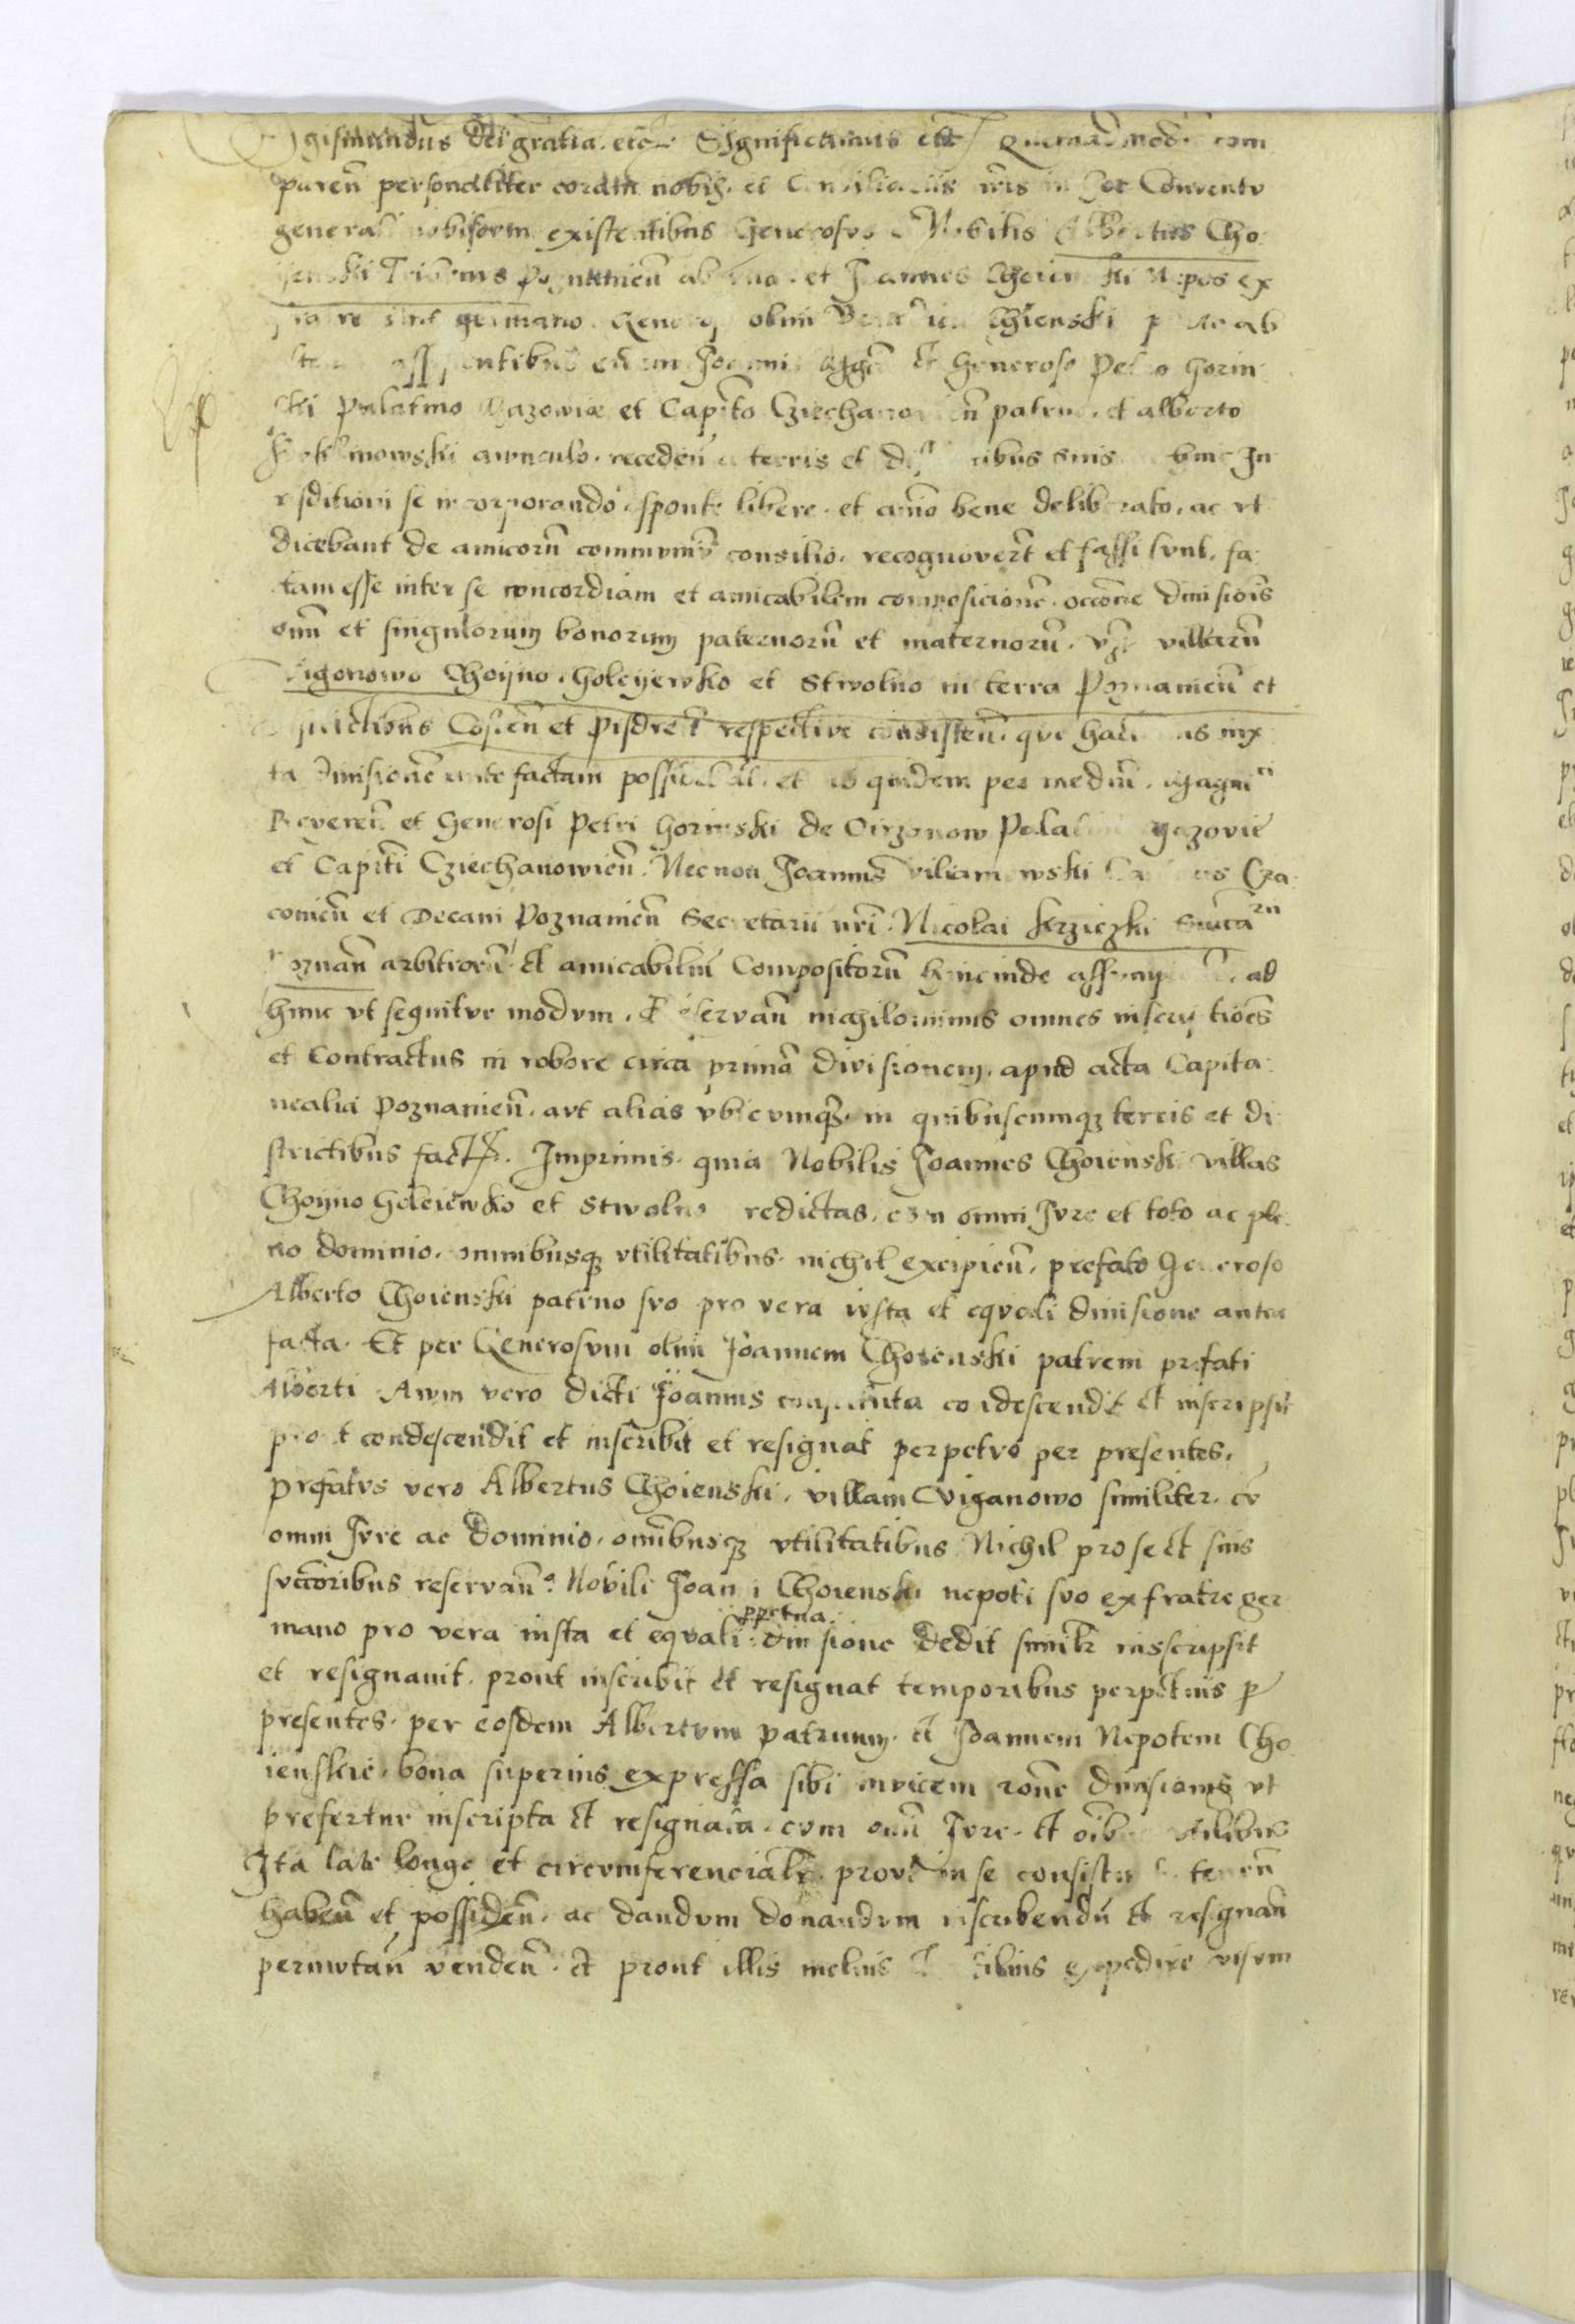 gismundus Dei gratia. etc Significamus etc com
paren personaliter coram nobis. et Consiliariis nris in hoc Conventu
generali nobiscum existentibus Generosus Nobilis Albertus Cho
Tribunus Poznanien et Joannes Nepos ex
fratre germano. Generosi olim ab
assistentibus eidem Joanni et Generoso Petro Gorin
ski Palatino Mazowiæ et Capito Cziechanowien patruo. et alberto
awnculo. receden a terris et suis huic In
se incorporando. sponte libere. et animo bene deliberato. ac vt
dicebant de amicorū commvni consilio. recognovert et fassi svnt. fa
tam esse inter se concordiam et amicabilem composicionē. divisiois
omniū et singulorum bonorum paternorū et maternorū. villarū
Choyno. Goleyewko et Stwolno in terra Poznanien et
districtibus Costen et Pisdren respective consisten. que
ta divisionē inde factam possidebat. et id quidem per mediū. Magnici
Reveren et Generosi Petri Gorinski de Oirzonow Palatini Mazovie
et Capiti Cziechanowien. Necnon Joannis Cra
covien et Decani Poznanien Secretarii nri. Nicolai Krziczki
Poznan arbitrorū et amicabiliū Compositorū hincinde ad
hunc vt sequitvr modvm. Reservan nichilominus omnes inscriptioēs
et Contractus in robore circa primā divisionem. apud acta Capita
nealia Poznanien. avt alias vbicvmqz. in quibuscumqz terris et di
strictibus fact. Imprimis. quia Nobilis Joannes Choienski villas
Choyno Goleiewko et Stwolno predictas. cvm omni Jvre et toto ac ple
no dominio. omnibusqz vtilitatibus. nichil excipien. prefato Generoso
Alberto Choienski patruo svo pro vera ivsta et eqvali divisione antea
facta. Et per Generosvm olim Joannem Choienski patrem prefati
Alberti Avvm vero dicti Joannis condescendit et inscripsit
provt condescendit et inscribit et resignat perpetvo per presentes.
Prefatvs vero Albertus Choienski. villam Wiganowo similiter. cv
omni Jvre ac Dominio. omibusqz vtilitatibus Nichil pro se et suis
svccoribus reservan. Nobili Joanni Choienski nepoti svo ex fratre ger
mano pro vera iusta et eqvali pptua divisione Dedit similr inscripsit
et resignauit. prout inscribit et resignat temporibus perpetuis p
presentes. per eosdem Albertvm Patruum. et Joannem Nepotem Cho
ienskie. bona superius expressa sibi invicem rone divisionis vt
prefertur inscripta et resignata. cvm omi Jvre. et oibus
Ita late longe et circvmferencialr. provt in se consistu tenen
haben et possiden. ac dandvm donandvm inscribendū et resignan
permvtan venden. et prout illis melius expedire visvm